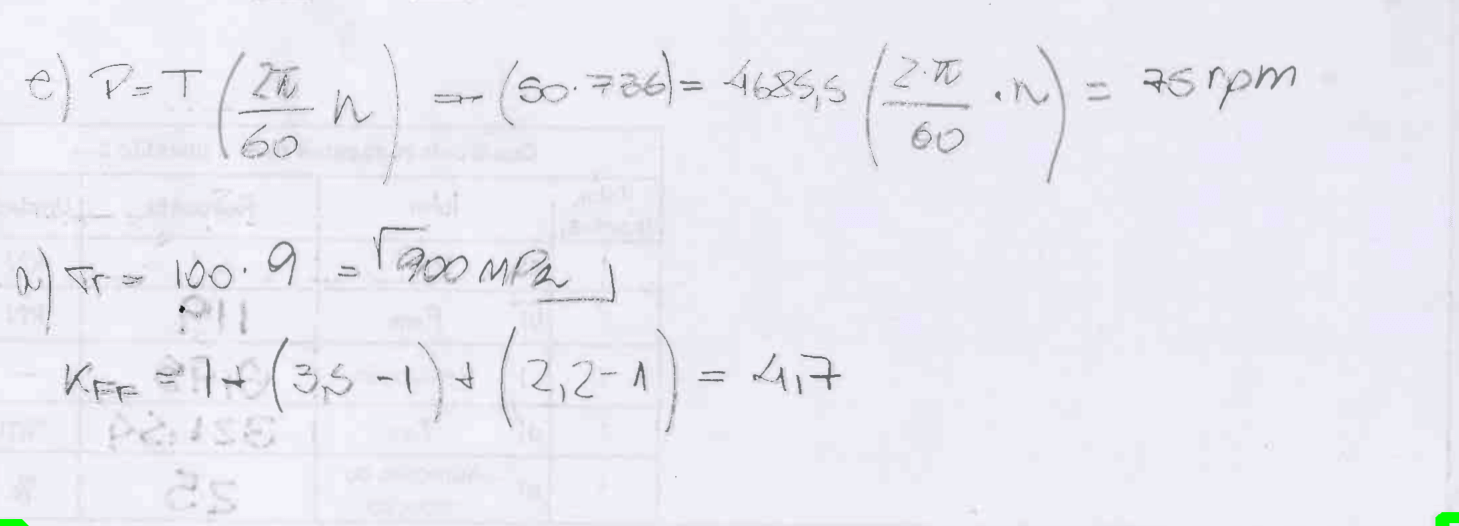 e) P = T (2π/60 n) — (50.736) = 4685,5 (2.π/60 .n) = 75 rpm
a) σr = 100.9 = 900 MPa
KFF = 1 + (3,5 - 1) + (2,2 - 1) = 4,7